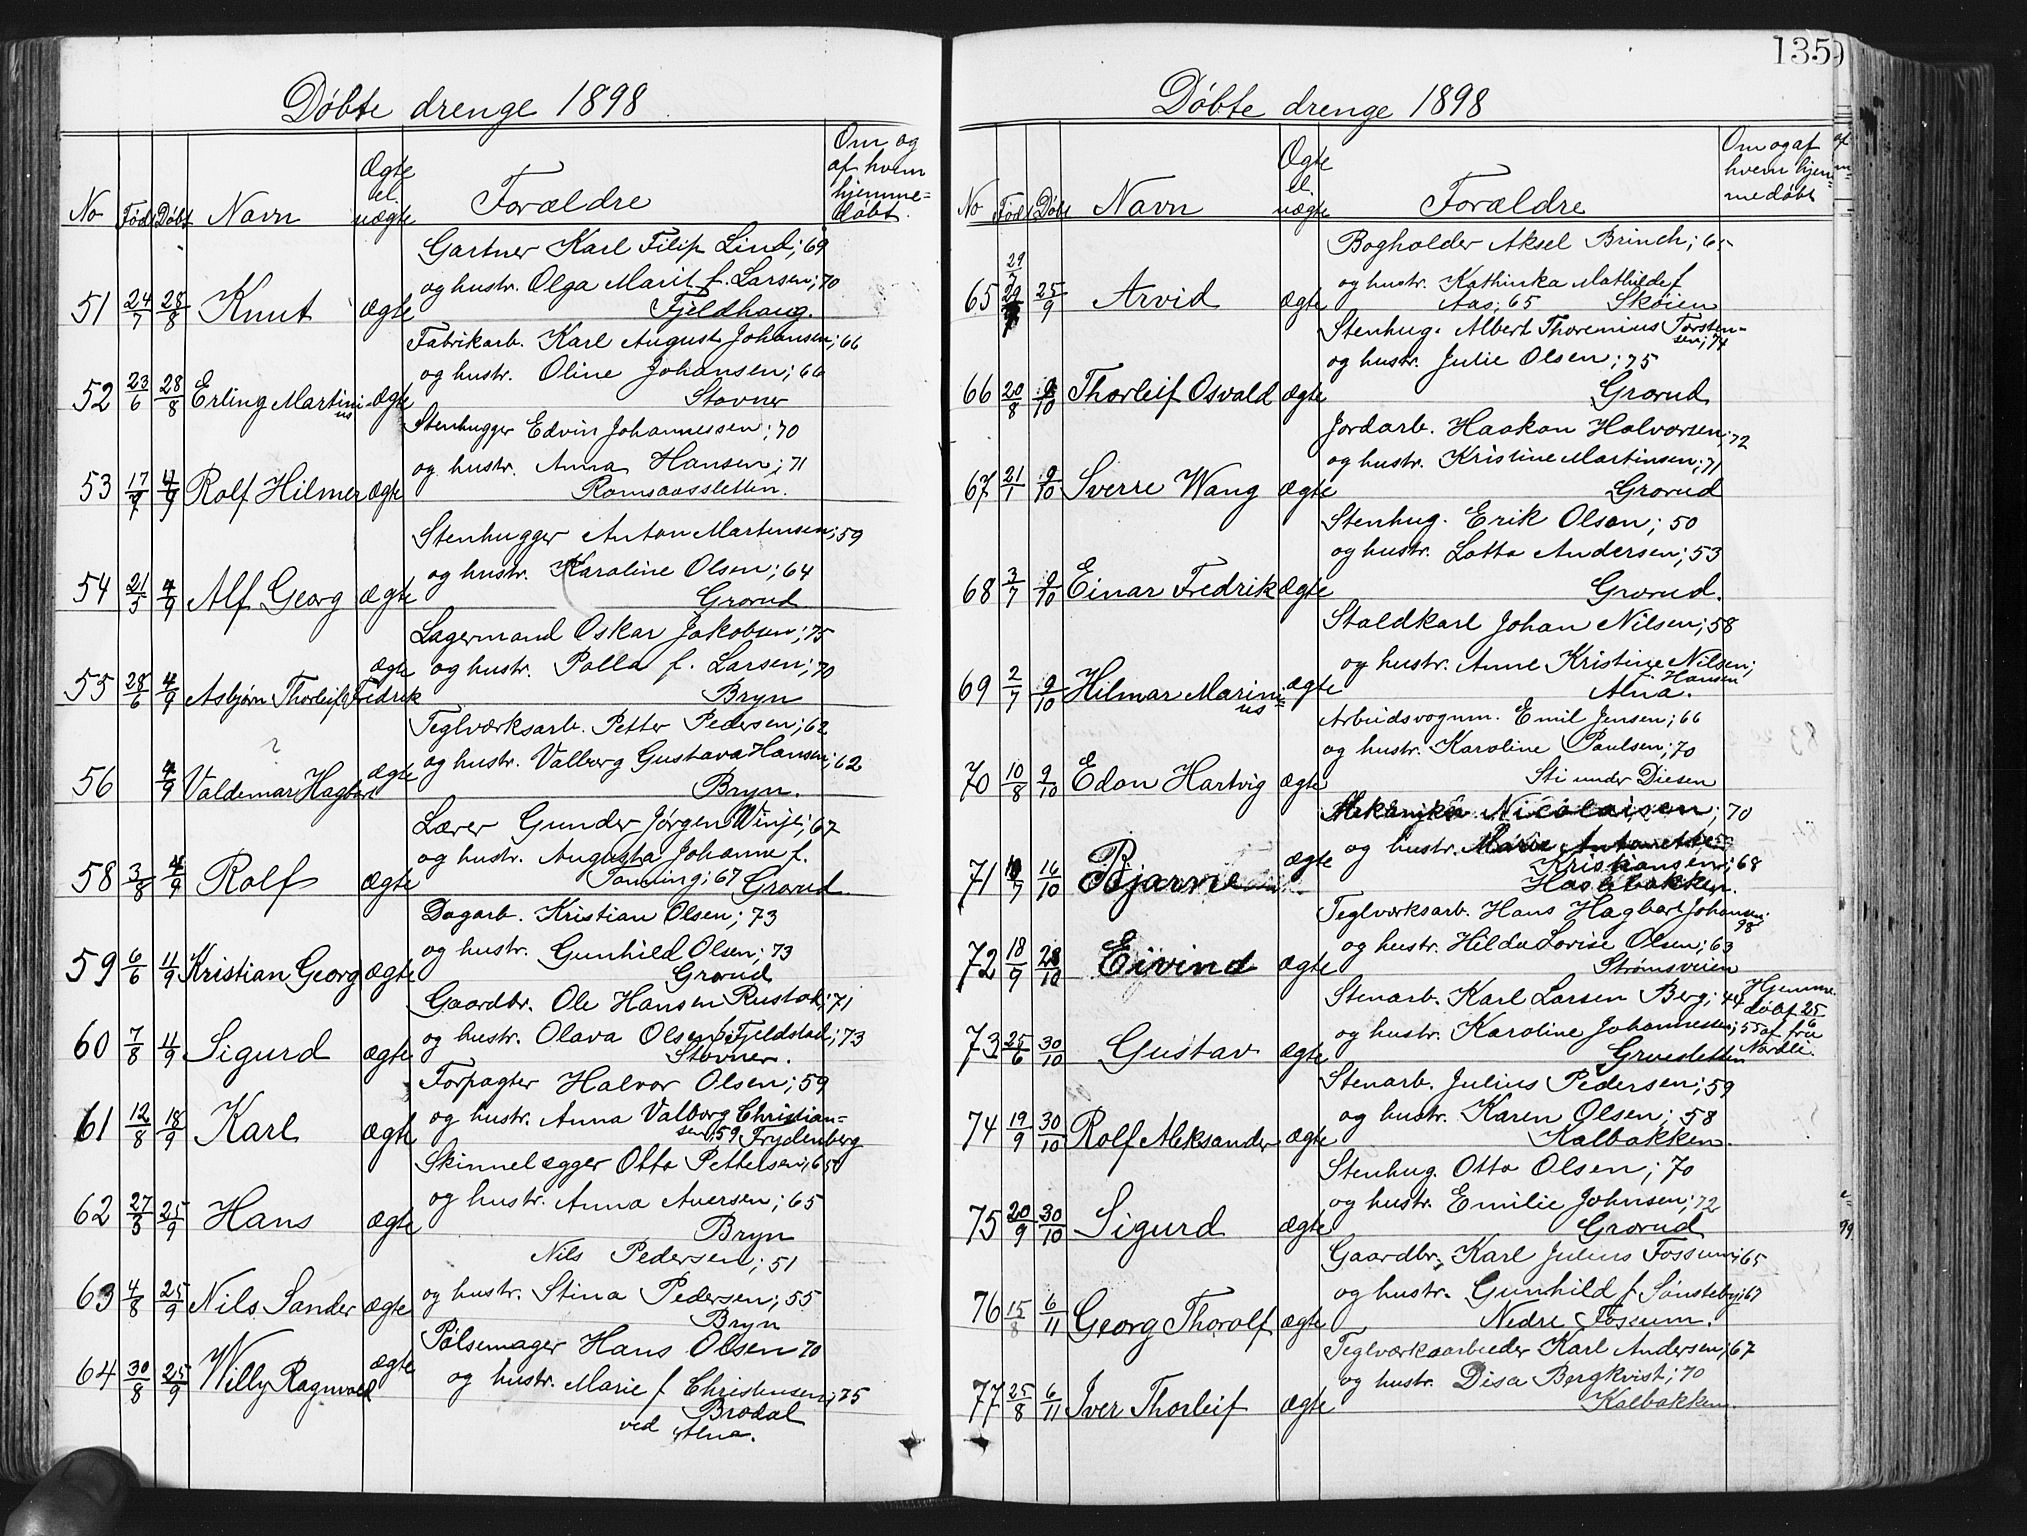 Døbte drenge 1898
No Født Døbt Navn Ægte el. uægte Forældre Om og af hvem hjemme=døbt.
Gartner Karl Filip Lind; 69
og hustr. Olga Marit f. Larsen; 70
51 24/7 28/8 Knut Ægte Fjeldhaug.
Fabrikarb. Karl August Johansen; 66
og hustr. Oline Johansen; 66
52 23/6 28/8 Erling Martinius Ægte Stovner
Stenhugger Edvin Johannessen; 70
og hustr. Anna Hansen; 71
53 17/7 4/9 Rolf Hilmer Ægte Romsaassletten.
Stenhugger Anton Martinsen; 59
og hustr. Karoline Olsen; 64
54 21/5 4/9 Alf Georg Ægte Grorud
Lagermand Oskar Jakobsen; 75
og hustr. Palla f. Larsen; 70
55 28/6 4/9 Asbjørn Thorleif Fredrik Ægte Bryn
Teglværksarb. Petter Pedersen; 62
og hustr. Valborg Gustava Hansen; 62
56 ? 4/9 Valdemar Hagbart Ægte Bryn.
Lærer Gunder Jørgen Winje; 67
og hustr. Augusta Johanne f.
Tonning; 67 Grorud
58 3/8 4/9 Rolf Ægte
Dagarb. Kristian Olsen; 73
og hustr. Gunhild Olsen; 73
59 6/6 11/9 Kristian Georg Ægte Grorud
Gaardbr. Ole Hansen Rustad; 71
og hustr. Olava Olsen f. Fjeldstad; 73
60 7/8 4/9 Sigurd Ægte Stovner.
Forpagter Halvor Olsen; 59
og hustr. Anna Valborg Christian=
61 12/8 18/9 Karl Ægte sen; 59 Frydenberg
Skinnelægger Otto Pettersen; 65
og hustr. Anna Aversen; 65
62 27/3 25/9 Hans Ægte Bryn
Nils Pedersen; 51
og hustr. Stina Pedersen; 55
63 4/8 25/9 Nils Sander Ægte Bryn
Pølsemager Hans Olsen 70
og hustr. Marie f. Christensen; 75
64 30/8 25/9 Willy Ragnvald Ægte Brodal
ved Alna.
135
Døbte drenge 1898
No Født Døbt Navn Ægte el. uægte Forældre Om og af hvem hjemmedøbt
Bogholder Aksel Brinch; 65
og hustr. Kathinka Mathilde f
65 29/7 25/9 Arvid Ægte Aas; 65 Skøien
Stenhug. Albert Thorenius Torsten=sen; 74
og hustr. Julie Olsen; 75
66 20/8 9/10 Thorleif Osvald Ægte Grorud
Jordarb. Haakon Halvorsen; 72
og hustr. Kristine Martinsen; 71
67 21/1 9/10 Sverre Wang Ægte Grorud
Stenhug. Erik Olsen; 50
og hustr. Lotta Andersen; 53
68 3/7 9/10 Einar Fredrik Ægte Grorud.
Staldkarl Johan Nilsen; 58
og hustr. Anne Kristine Nilsen;
f. Hansen
69 2/7 9/10 Hilmar Marinius Ægte Alna.
Arbeidsvognm. Emil Jensen; 66
og hustr. Karoline Paulsen; 70
70 10/8 9/10 Edon Hartvig Ægte Sti under Diesen
Mekanik. Nicolaisen; 70
og hustr. Marie Antonette
Kristiansen; 68
71 10/7 16/10 Bjarne Ægte Haslebakken.
Teglværksarb. Hans Hagbart Johansen
98
og hustr. Hilda Lovise Olsen; 63
72 18/9 28/10 Eivind Ægte Strømsveien
Stenarb. Karl Larsen Berg; 44
og hustr. Karoline Johannessen; 55
73 25/6 30/10 Gustav Ægte Grueslettin Hjemmedøbt 25/6 af fru Nordli.
Stenarb. Julius Pedersen; 59
og hustr. Karen Olsen; 58
74 19/9 30/10 Rolf Aleksander Ægte Kalbakken.
Stenhug. Otto Olsen; 70
og hustr. Emilie Johnsen; 72
75 20/9 30/10 Sigurd Ægte Grorud
Gaardbr. Karl Julius Fossum; 65
og hustr. Gunhild f. Sønsteby; 67
76 15/8 6/11 Georg Thorolf Ægte Nedre Fossum.
Teglværksarbeider Karl Andersen; 67
og hustr. Disa Bergkvist; 70
77 25/8 6/11 Iver Thorleif Ægte Kalbakken.